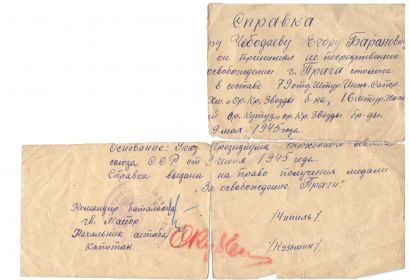 Справка
Чебодаеву Егору Барановичу
он принимал не посредственное
освобождении г. Прага столица
в составе 79 отд. Штур. Инж. Сапер.
Хм. и Ор. Кр. Звезды б-на, 16 штур. Инж.
ор. Кутуз. и ор. Кр. Звезды бр-ды.
9 мая 1945 года.
Основание: Указ Президиума Верховного Совета
союза ССР от 9 июня 1945 года.
Справка выдана на право получения медали
"За освобождение Праги".
Командир батальона
гв. Майор /Чипиль/.
Начальник штаба
Капитан. /Кузьмин/.